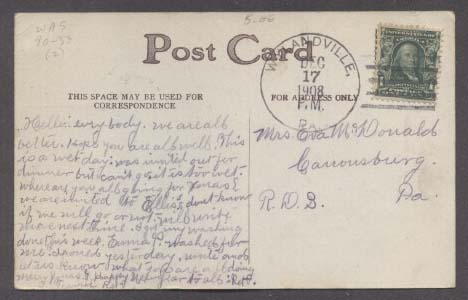 WAS
90-33
(2)
5.00
Post Card
THIS SPACE MAY BE USED FOR
CORRESPONDENCE
FOR ADDRESS ONLY
DEC
17
1908
P.M.
PA.
Hello every body. we are all
better. hope you are all well. This
is a wet day. was invited out for
dinner but can't go it is too wet.
where are you all going for Xmas?
we are invited to Ellis's don't know
if we will go or not. will write
more next time. got my washing
done this week. Emma washed for
me. ironed yesterday. write and
let us know what you are all doing
Mrs Eva McDonald
Canonsburg.
R.D.S. Pa.